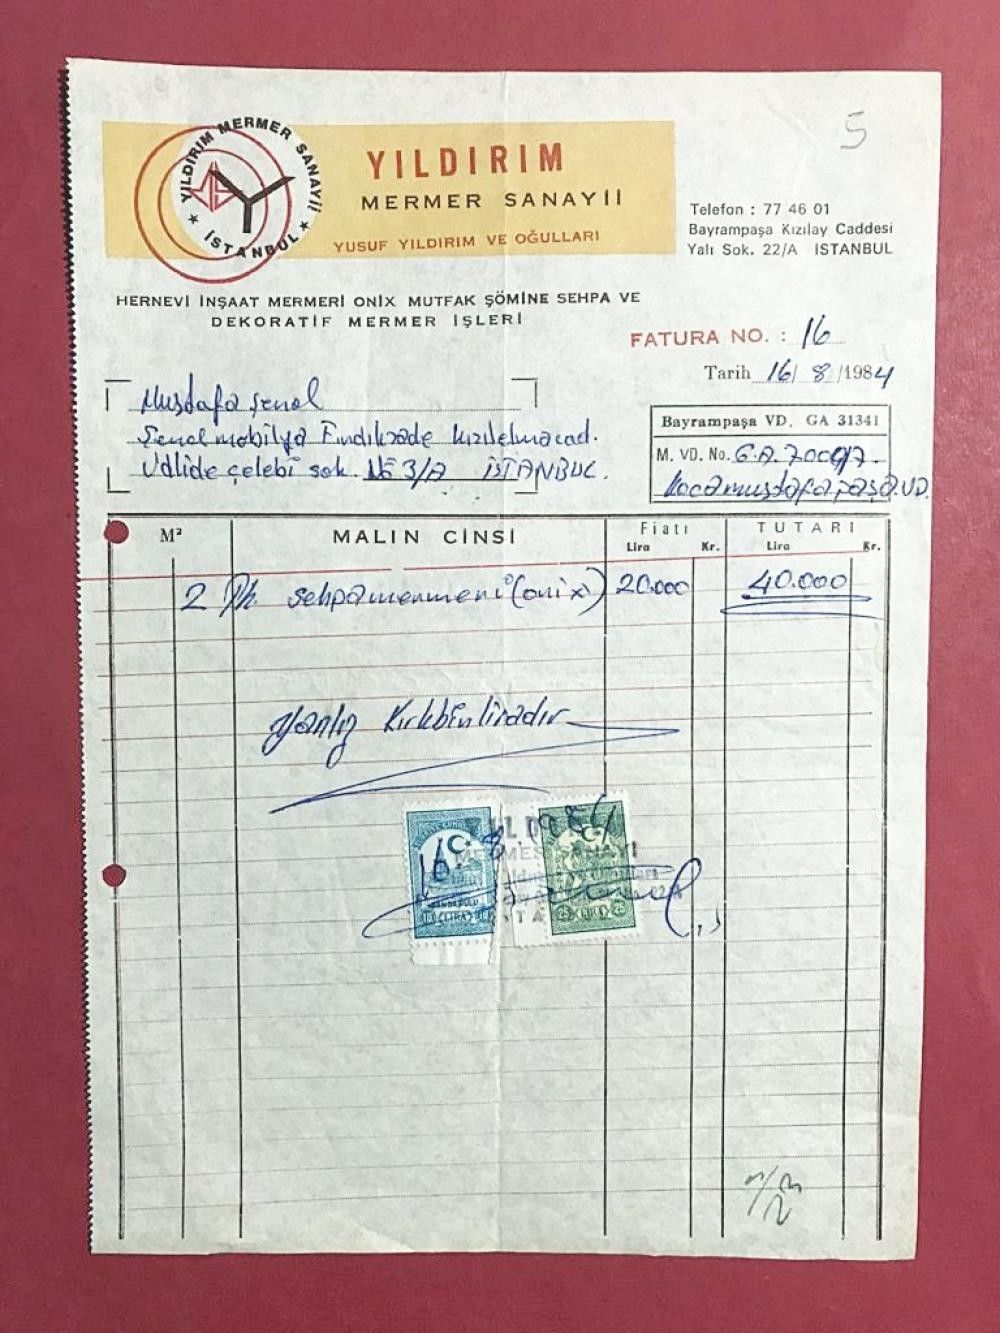 5
YILDIRIM MERMER SANAYİİ
★ İSTANBUL ★
YILDIRIM
MERMER SANAYİİ
YUSUF YILDIRIM VE OĞULLARI
Telefon : 77 46 01
Bayrampaşa Kızılay Caddesi
Yalı Sok. 22/A İSTANBUL
HERNEVİ İNŞAAT MERMERİ ONİX MUTFAK ŞÖMİNE SEHPA VE
DEKORATİF MERMER İŞLERİ
FATURA NO. : 16
Tarih 16/ 8 /1984
Mustafa Şenol
Şenol mobilya Fındıkzade kızılelma cad.
Valide çelebi sok. No 3/A İSTANBUL.
Bayrampaşa VD. GA 31341
M. VD. No. G.A.
Kocamustafapaşa.VD.
M² MALIN CİNSİ Fiatı TUTARI
Lira Kr. Lira Kr.
2 sehpa mermeri (onix) 20.000 40.000
Yanlız Kırkbinliradır
16.8.1984
LİRA
25 LİRA 25